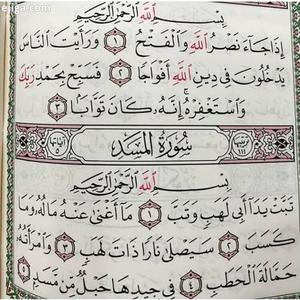 ejiga.com
بِسْمِ اللَّهِ الرَّحْمَٰنِ الرَّحِيمِ
إِذَا جَاءَ نَصْرُ اللَّهِ وَالْفَتْحُ ١ وَرَأَيْتَ النَّاسَ
يَدْخُلُونَ فِي دِينِ اللَّهِ أَفْوَاجًا ٢ فَسَبِّحْ بِحَمْدِ رَبِّكَ
وَاسْتَغْفِرْهُ إِنَّهُ كَانَ تَوَّابًا ٣
ترتيبها ١١١ سُورَةُ الْمَسَدِ آياتها ٥
بِسْمِ اللَّهِ الرَّحْمَٰنِ الرَّحِيمِ
تَبَّتْ يَدَا أَبِي لَهَبٍ وَتَبَّ ١ مَا أَغْنَىٰ عَنْهُ مَالُهُ وَمَا
كَسَبَ ٢ سَيَصْلَىٰ نَارًا ذَاتَ لَهَبٍ ٣ وَامْرَأَتُهُ
حَمَّالَةَ الْحَطَبِ ٤ فِي جِيدِهَا حَبْلٌ مِنْ مَسَدٍ ٥